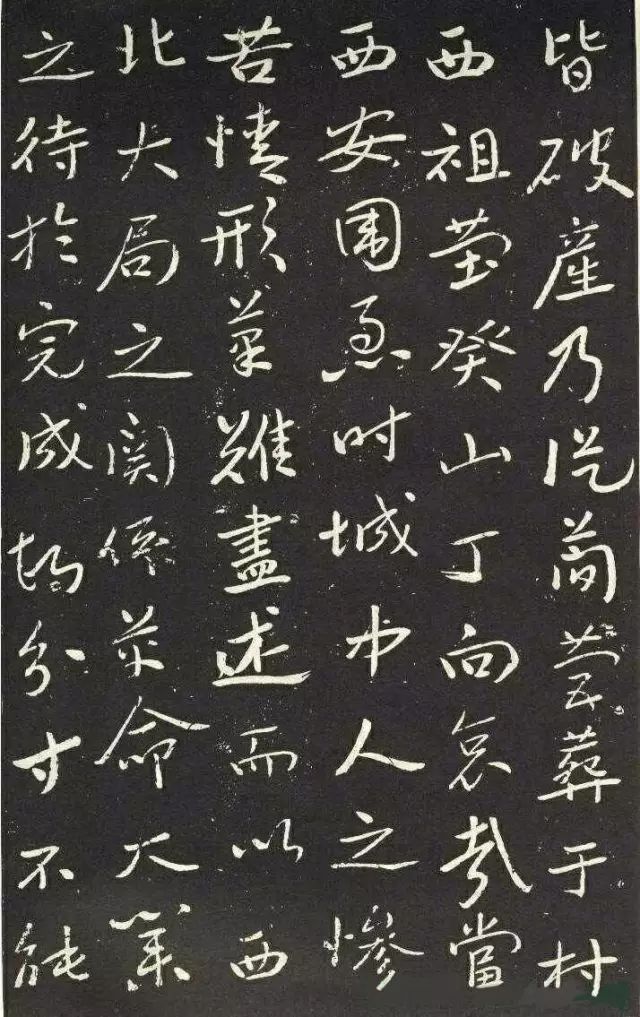 皆破產乃從簡營葬于村
西祖塋癸山丁向哀哉當
西安圍急時城中人之慘
苦情形筆難盡述而以西
北大局之關係革命大業
之待於完成均分寸不能